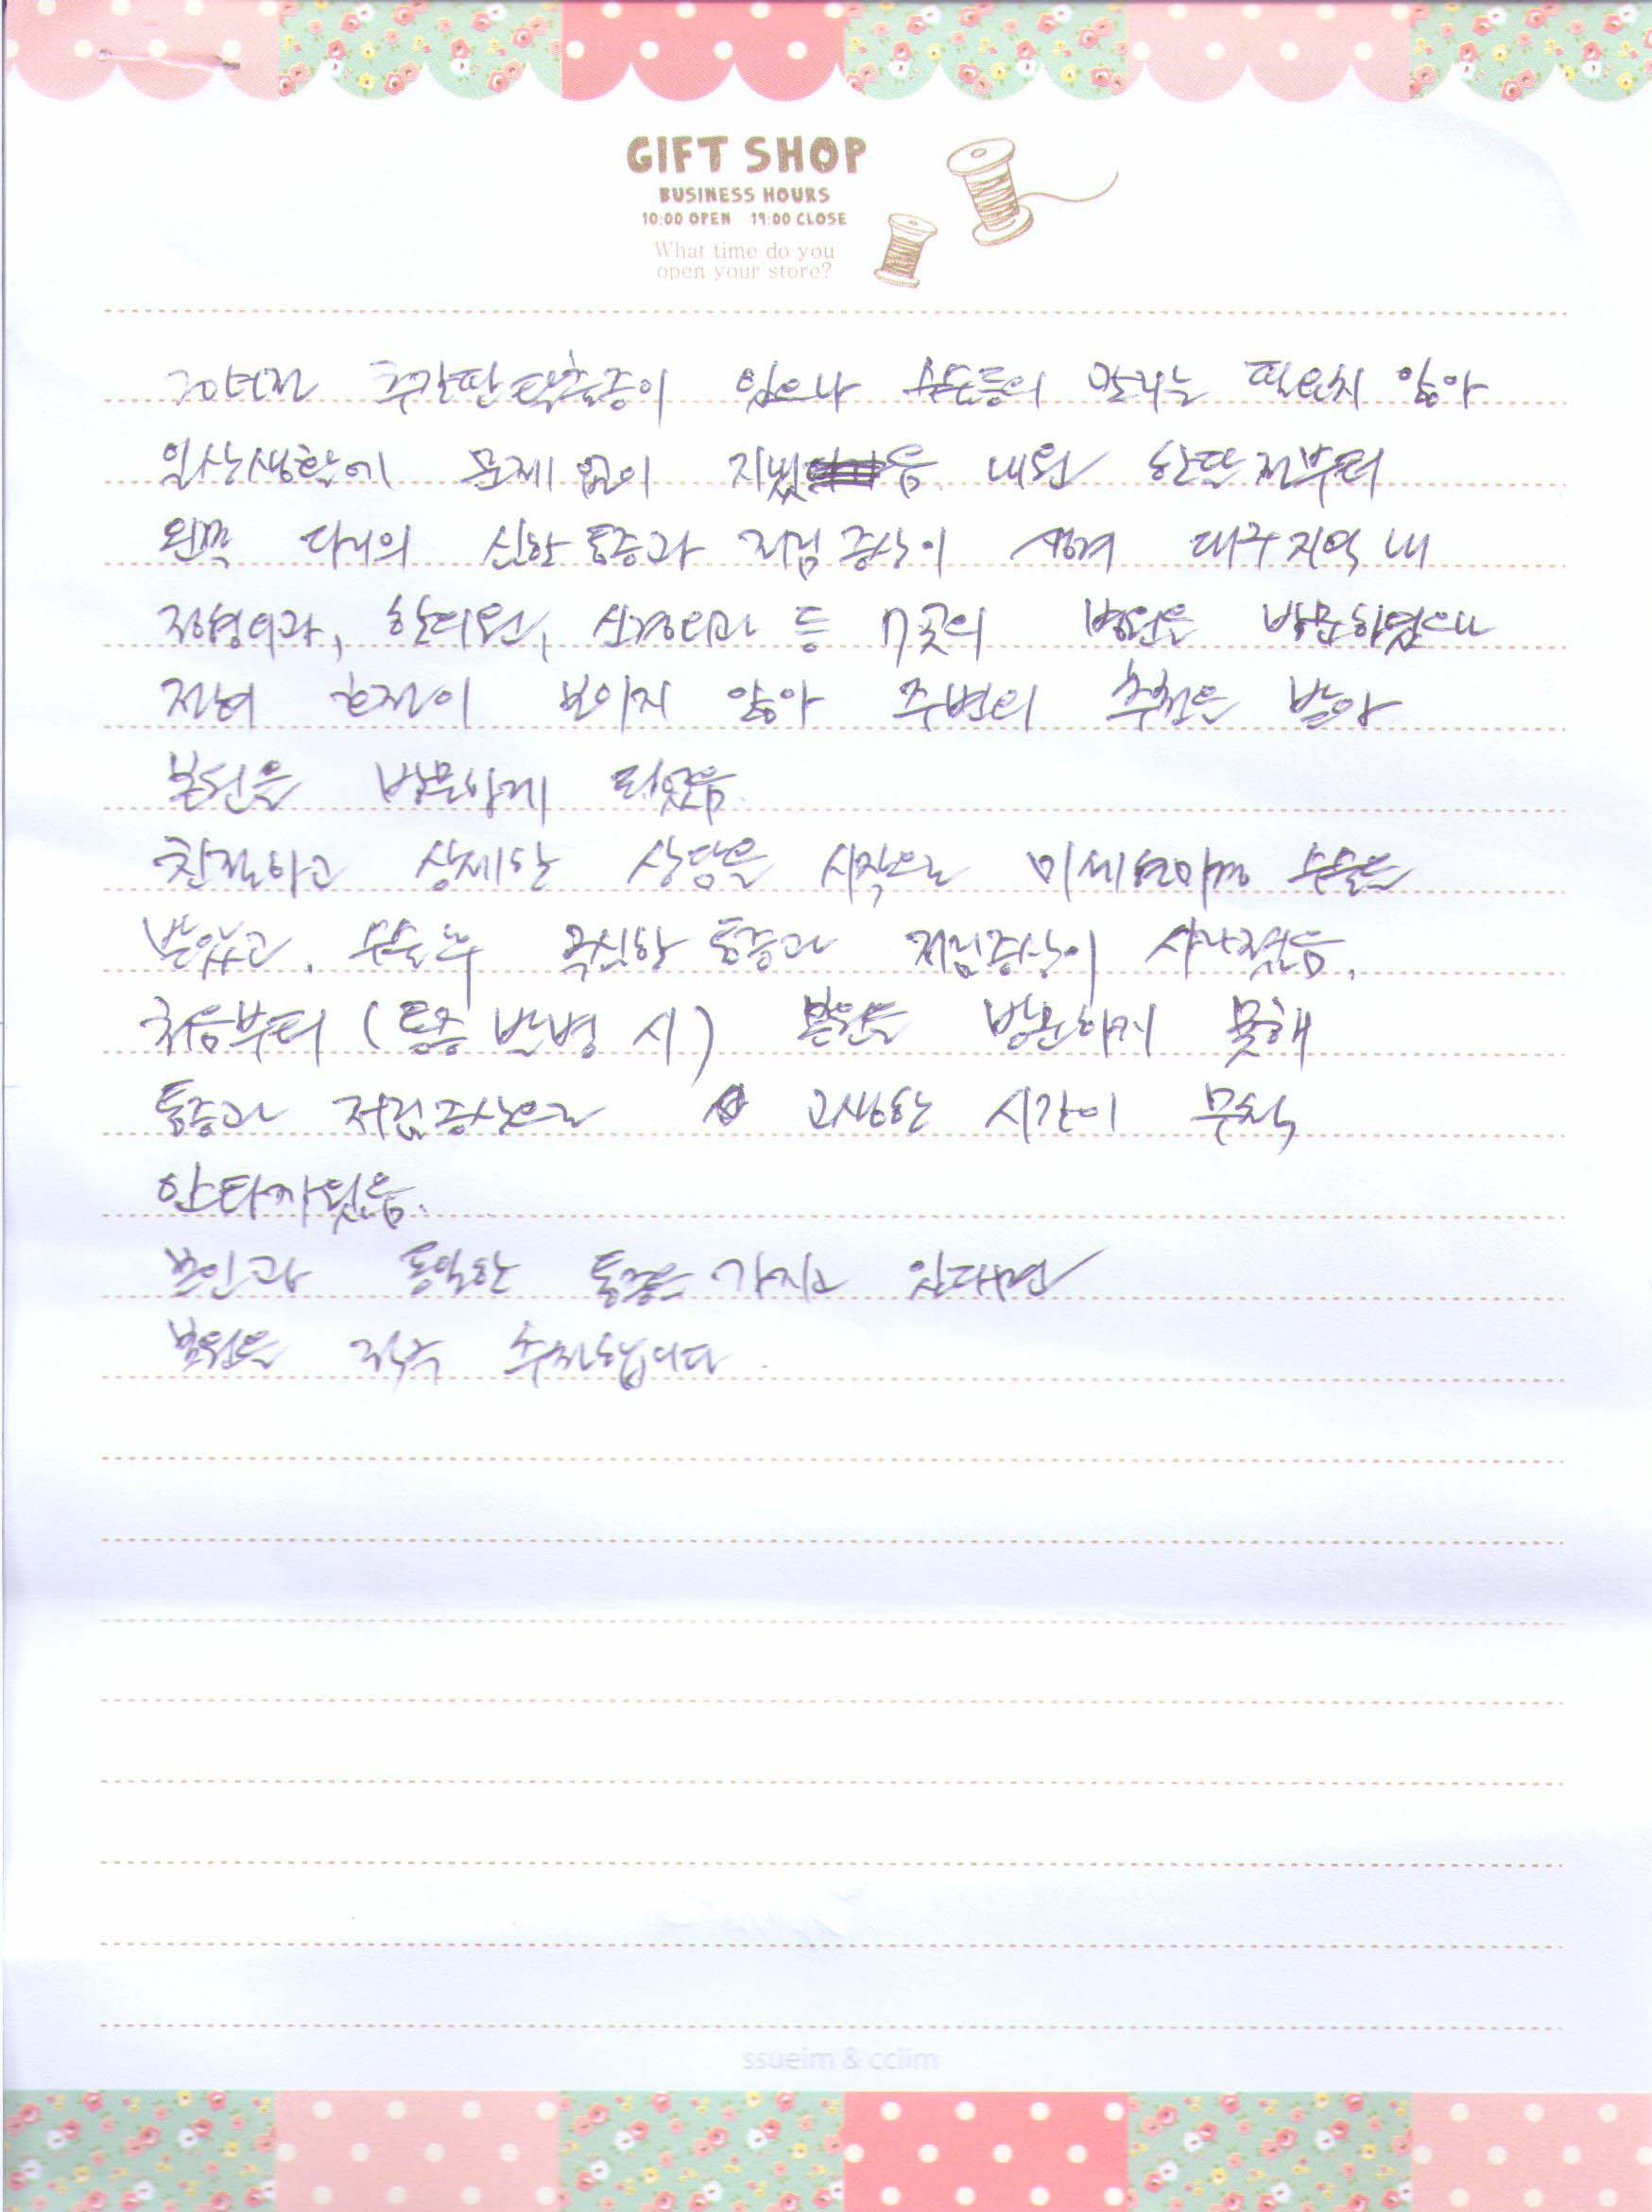 GIFT SHOP
BUSINESS HOURS
10:00 OPEN 19:00 CLOSE
What time do you
open your store?
추간판탈출증이 있으나 수술등의 필요치 않아
일상생활에 문제 없이 지냈음. 내원 한달 전부터
왼쪽 다리의 심한 통증과 저림 증상이 생겨 대구지역 내
정형외과, 한의원, 신경외과 등 7곳의 병원을 방문하였으나
전혀 호전이 보이지 않아 주변의 추천을 받아
본원을 방문하게 되었음.
친절하고 상세한 상담을 시작으로 미세현미경 수술을
받았고, 수술후 극심한 통증과 저림증상이 사라졌음.
처음부터 (통증 발병 시) 본원을 방문하지 못해
통증과 저림증상으로 고생한 시간이 무척
안타까웠음.
본인과 동일한 통증을 가지고 있다면
본원을 적극 추천합니다.
ssueim & cclim